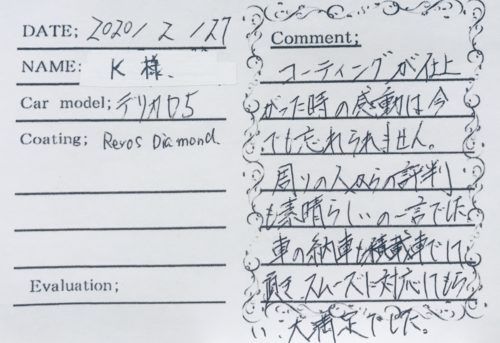 DATE; 2020/2/27
NAME: K 様.
Car model; デリカD5
Coating; Revos Diamond
Evaluation;
Comment;
コーティングが仕上
がった時の感動は今
でも忘れられません。
周りの人からの評判
も素晴らしいの一言でした
車の納車も積載車でして
頂き、スムーズに対応してもら
い、大満足でした。